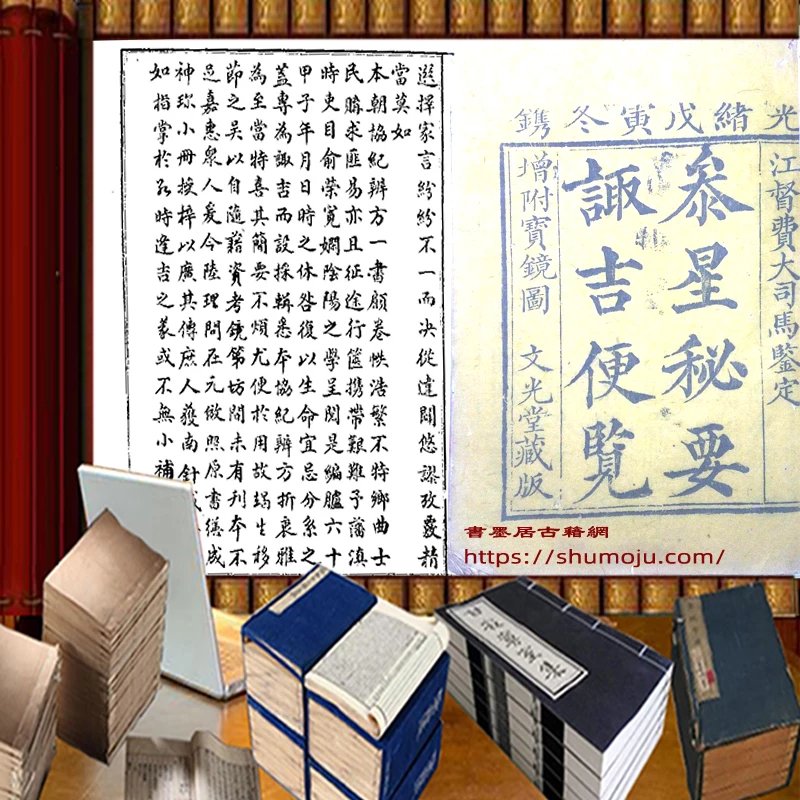 光緒戊寅冬鐫
江督費大司馬鑒定
叅星秘要
諏吉便覽
增附寶鏡圖 文光堂藏版
書墨居古籍網
https://shumoju.com/
選擇家言紛紛不一而决從違閎悠謬攷覈精
當莫如
本朝協紀辨方一書顧卷帙浩繁不特鄉曲士
民購求匪易亦且征途行篋携帶艱難予藩滇
時吏目俞榮寬嫻陰陽之學呈閱是編臚六十
甲子年月日時之休咎復以生命宜忌分系之
蓋專為諏吉而設採輯悉本協紀辨方折衷雅
為至當特喜其簡要不煩尤便於用故移
節之吳以自隨藉資考鏡第坊間未有刊本不
足嘉惠眾人爰令陸理問在元倣照原書成
珍小冊授梓以廣其傳庶人獲南針
如指掌於時逢吉之或不無小補